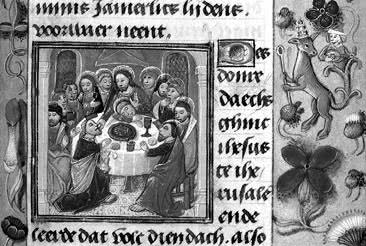 mijns Jamerlics lijdens.
voorwaer neent.
Des
donre
daechs
ghinc
ihesus
te ihe
rusale
ende
leerde dat volc dien dach. also